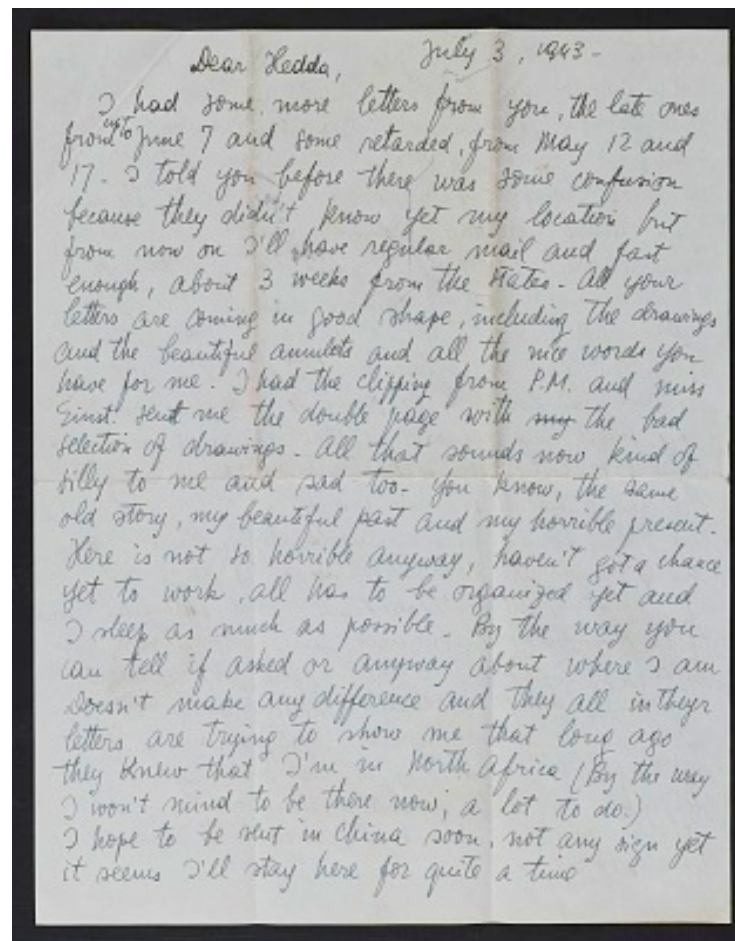 July 3, 1943 -
Dear Hedda,
I had some more letters from you, the late ones
from up to June 7 and some retarded, from May 12 and
17 - I told you before there was some confusion
because they didn't know yet my location but
from now on I'll have regular mail and fast
enough, about 3 weeks from the States - All your
letters are coming in good shape, including the drawings
and the beautiful amulets and all the nice words you
have for me. I had the clipping from P.M. and miss
Einst. sent me the double page with my the bad
selection of drawings - All that sounds now kind of
silly to me and sad too - You know, the same
old story, my beautiful past and my horrible present -
Here is not so horrible anyway, haven't got a chance
yet to work, all has to be organized yet and
I sleep as much as possible. By the way you
can tell if asked or anyway about where I am
doesn't make any difference and they all in theyr
letters are trying to show me that long ago
they knew that I'm in North Africa (By the way
I won't mind to be there now, a lot to do.)
I hope to be sent in China soon, not any sign yet
it seems I'll stay here for quite a time